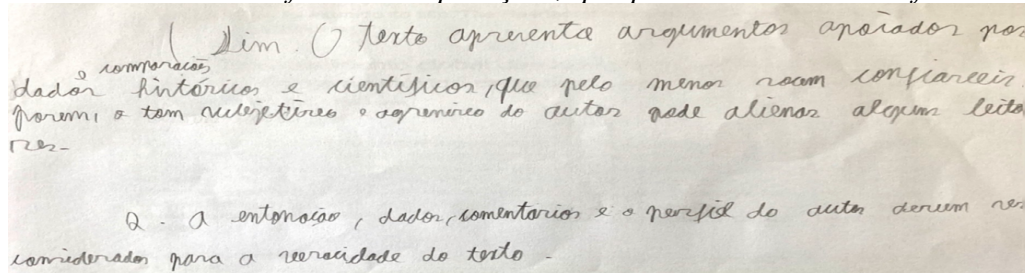 1. Sim. O texto apresenta argumentos apoiados por
e comparações
dados históricos e científicos, que pelo menos soam confiaveis.
Porem, o tom subjetivo e agressivo do autor pode alienar alguns leito
res-
2. A entonação, dados, comentarios e o perfil do autor devem ser
considerados para a veracidade do texto.